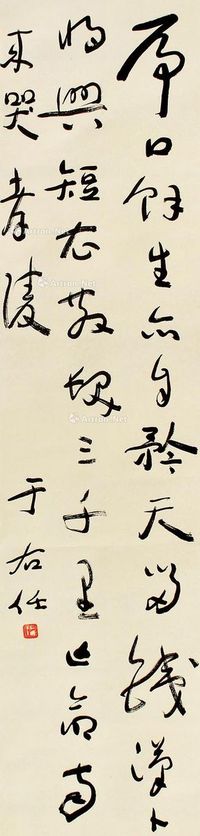 虎口餘生亦自矜天留鐵漢卜
將興短衣散髮三千里亡命南
來哭孝陵
于右任